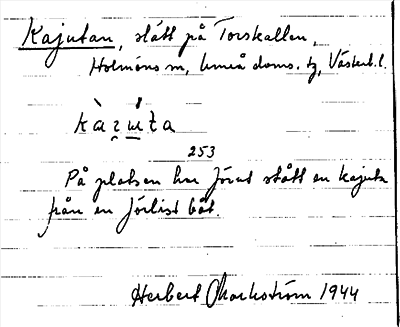 Kajutan, slätt på Torskallen,
Holmöns sn, Umeå doms. tg, Västerb. l.
253
På platsen har förut stått en kajuta
från en förlist båt.
Herbert Markström 1944